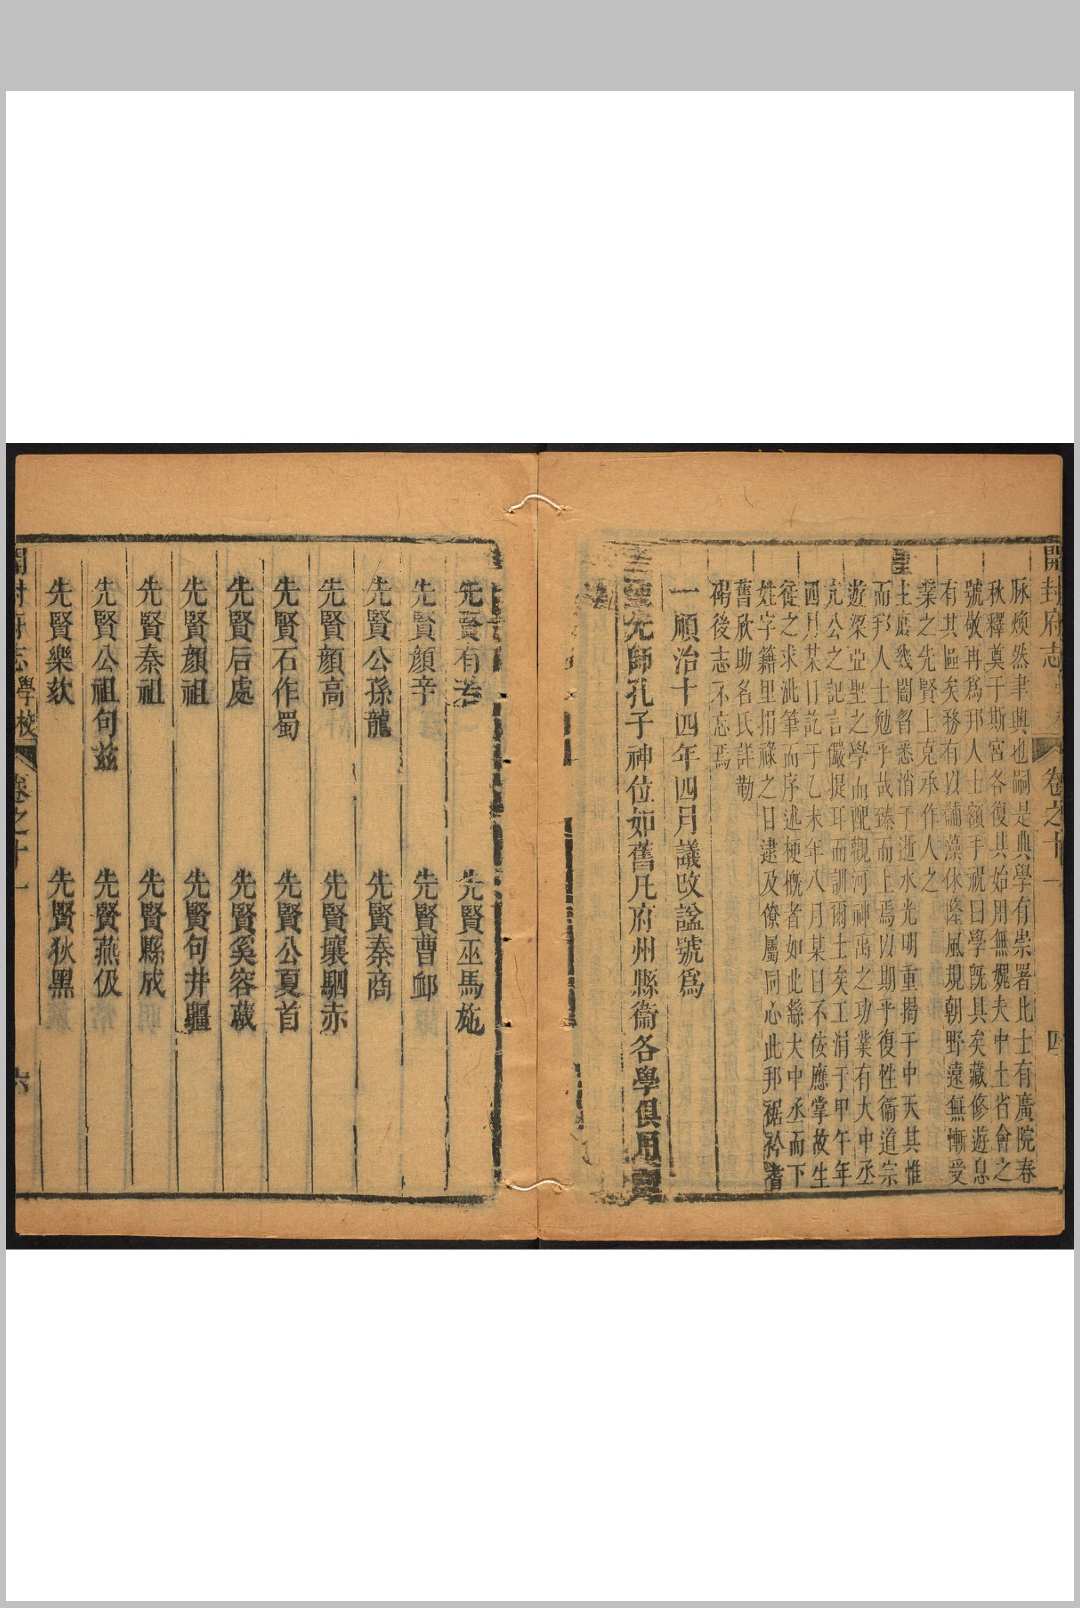 開封府志 卷之十一 四
脉煥然聿興也嗣是典學有崇署比士有廣院春
秋釋奠于斯宮各復其始用無覥夫中土省會之
號敬再為邦人士額手祝曰學旣具矣藏修遊息
有其區矣務有以誦藻休隆風規朝野遠無慚受
業之先賢上克承作人之
聖
主磨幾闇督悉消于逝水光明重揭于中天其惟
而邦人士勉乎哉臻而上焉以期乎復性衞道宗
遊梁亞聖之學而配觀河神禹之功業有大中丞
亢公之記言儼提耳而訓爾士矣工涓于甲午年
四月某日訖于乙未年八月某日不佞應掌故生
徒之求泚筆而序述梗概者如此繇大中丞而下
姓字籍里捐祿之日逮及僚屬同心此邦裾衿耆
舊欣助名氏詳勒
碣後志不忘焉
一順治十四年四月議改諡號為
至聖先師孔子神位如舊凡府州縣衞各學俱用
先賢有若 先賢巫馬施
先賢顔辛 先賢曹卹
先賢公孫龍 先賢秦商
先賢顔高 先賢壤駟赤
先賢石作蜀 先賢公夏首
先賢后處 先賢奚容蒧
先賢顔祖 先賢句井疆
先賢秦祖 先賢縣成
先賢公祖句玆 先賢燕伋
先賢樂欬 先賢狄黑
開封府志 學校 卷之十一 六